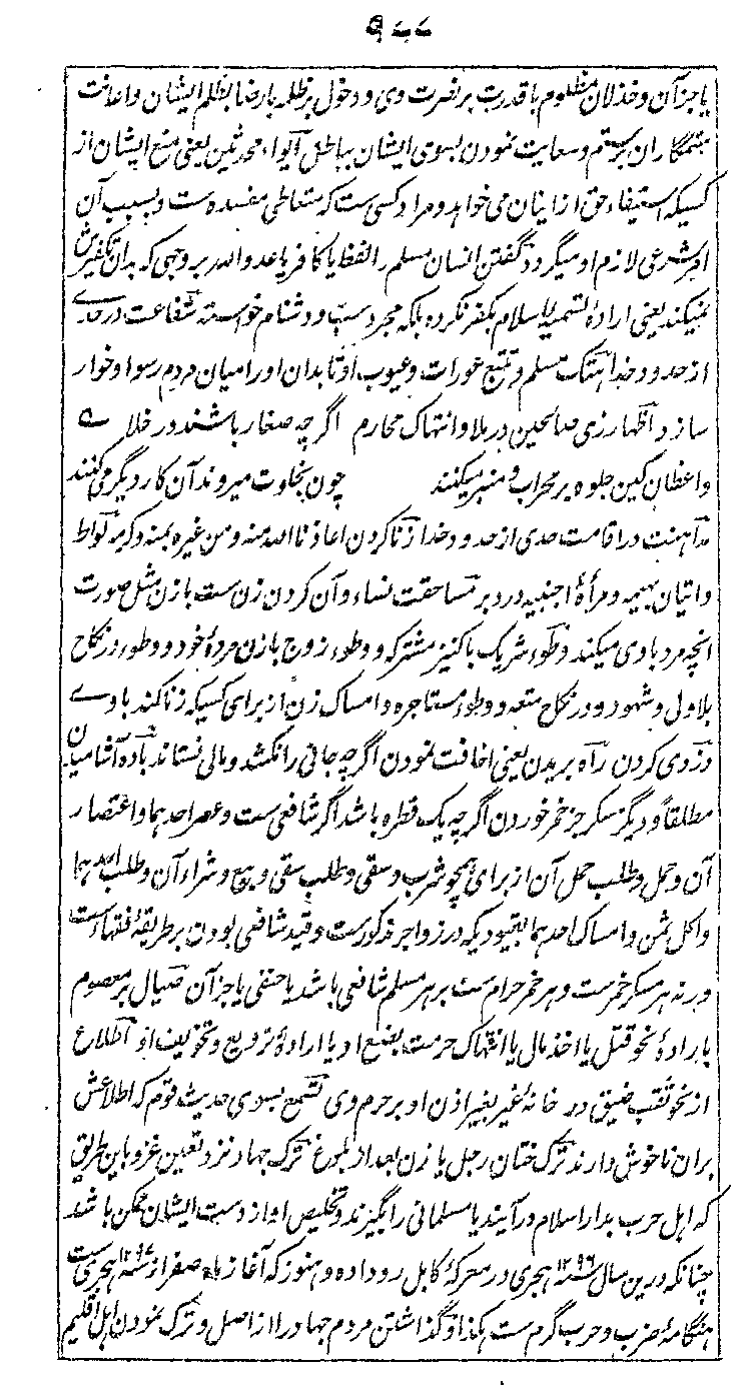 ۹۷۷
یا جز آن و خذلان مظلوم با قدرت بر نصرت وی و دخول بر ظلمه با رضا بظلم ایشان و اعانت
بستمگاران بر ستم و سعایت نمودن بسوی ایشان بباطل آیواء محدثین یعنی منع ایشان از
کسیکه استیفاء حق از اینان می خواهد و مراد کسی ست که متعاطی مفسده ست و بسبب آن
امر شرعی لازم او میگردد گفتن انسان مسلم را لفظ یا کافر یا عدو الله بر وجهی که بدان تکفیرش
نمیکند یعنی اراده تسمیه اسلام بکفر نکرده بلکه مجرد سب و دشنام خواسته شفاعت در حدے
از حدود خدا هتک مسلم و تتبع عورات و عیوب او تا بدان او را میان مردم رسوا و خوار
سازد اظهار زی صالحین در ملا و انتهاک محارم اگر چه صغار باشند در خلا ے
واعظان کین جلوه بر محراب و منبر میکنند چون بخلوت میروند آن کار دیگر می کنند
مداهنت در اقامت حدی از حدود خدا زنا کردن اعاذنا الله منه و من غیره بمنه و کرمه لواط
و اتیان بهیمه و مرأة اجنبیه در دبر مساحقت نساء و آن کردن زن ست با زن مثل صورت
آنچه مرد با وی میکند وطوء شریک با کنیز مشترکه و وطوء زوج با زن مرده خود و وطوء در نکاح
بلا ولی و شهود و در نکاح متعه و وطوء مستاجره و امساک زن از برای کسیکه زنا کند با وے
دزدی کردن راه بریدن یعنی اخافت نمودن اگر چه جانی را نکشد و مالی نستاند باده آشامیدن
مطلقاً و دیگر مسکر جز خمر خوردن اگر چه یک قطره باشد اگر شافعی ست و عصر احدهما و اعتصار
آن و حمل و طلب حمل آن از برای همچو شرب و سقی و طلب سقی و بیع و شراء آن و طلب احدهما
و اکل ثمن و امساک احدهما بقیودیکه در زواجر مذکورست و قید شافعی بودن بر طریقه فقهاء ست
ورنه هر مسکر خمرست و هر خمر حرام ست بر هر مسلم شافعی باشد یا حنفی یا جز آن صیال بر معصوم
باراده نحو قتل یا اخذ مال یا انتهاک حرمت بضع او یا اراده ترویع و تخویف او اطلاع
از نحو ثقب ضیق در خانه غیر بغیر اذن او بر حرم وی تسمع بسوی حدیث قوم که اطلاعش
بران ناخوش دارند ترک ختان رجل یا زن بعد از بلوغ ترک جهاد نزد تعین غزو باین طریق
که اهل حرب بدار اسلام در آیند یا مسلمانی را بگیرند و تخلیص او از دست ایشان ممکن باشد
چنانکه درین سال سنه ۱۲۹۶ هجری در معرکه کابل رو داده و هنوز که آغاز ماه صفر از سنه ۱۲۹۷ هجری ست
هنگامه ضرب و حرب گرم ست هکذا و گذاشتن مردم جهاد را از اصل و ترک نمودن اهل اقلیم